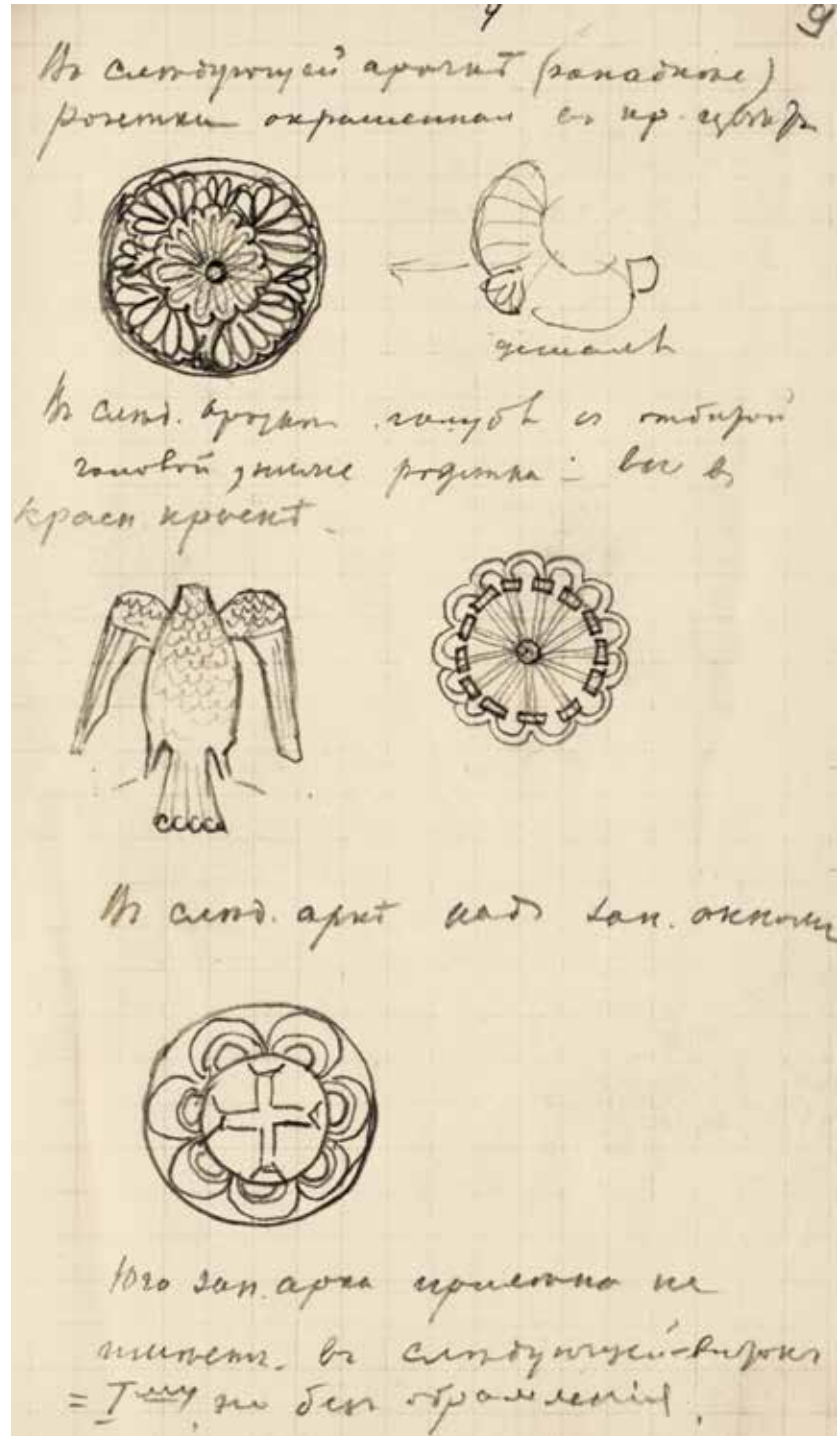 4 9
Въ слѣдующей арочкѣ (западнѣе)
розетка окрашенная въ кр. цвѣтъ
деталь
Въ слѣд. арочкѣ голубь с отбитой
головой, ниже розетка: все в
красн краскѣ
Въ слѣд. аркѣ надъ зап. окномъ
Юго зап. арка не
имѣетъ. въ слѣдующей
= I му, но безъ обрамленія.